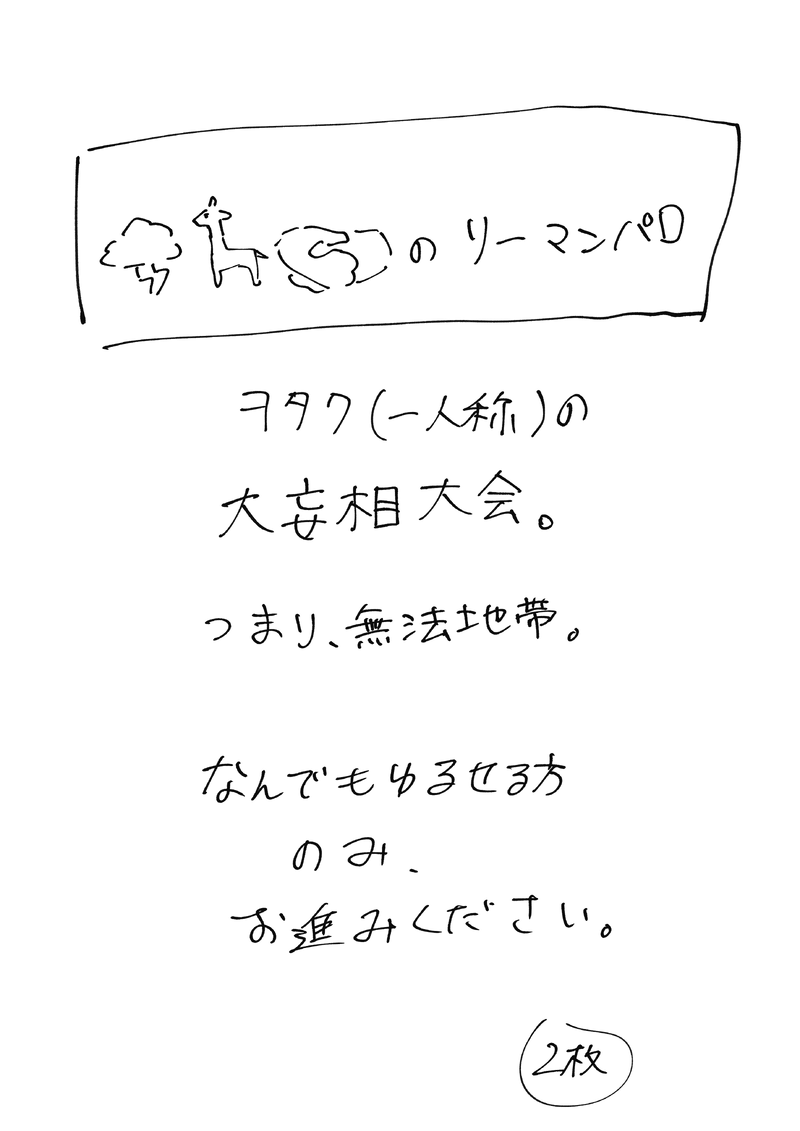 のリーマンパロ
ヲタク(一人称)の
大妄相大会。
つまり、無法地帯。
なんでもゆるせる方
のみ、
お進みください。
2枚